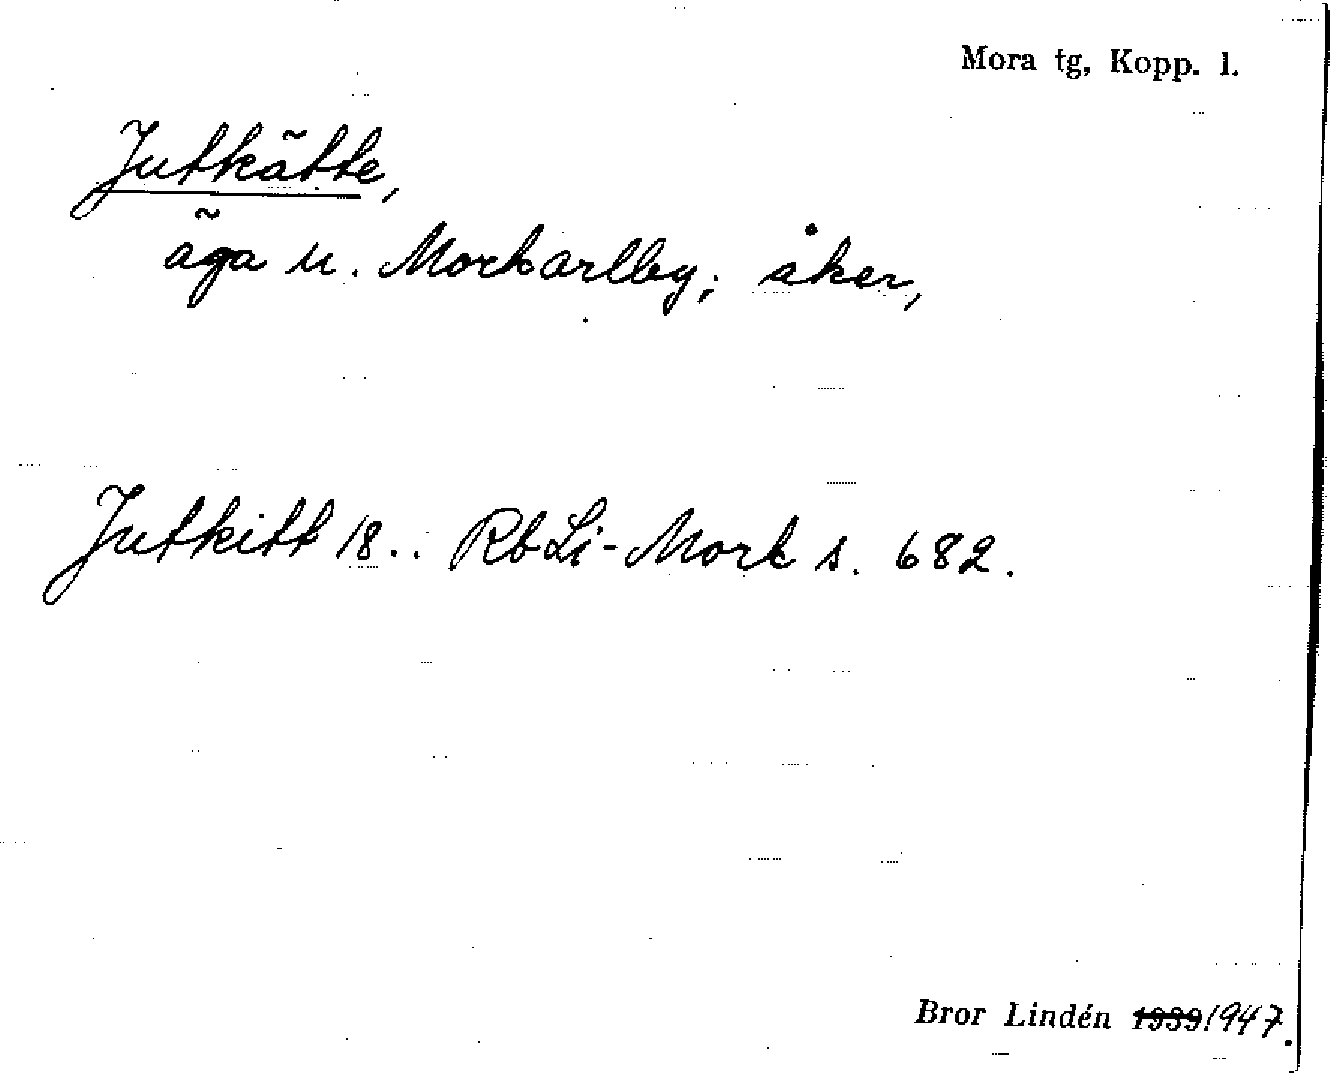 Mora tg, Kopp. l.
Jutkätte,
äga u. Morkarlby; åker,
Jutkitt 18.. RbLi-Mork s. 682.
Bror Lindén 1939 1947.